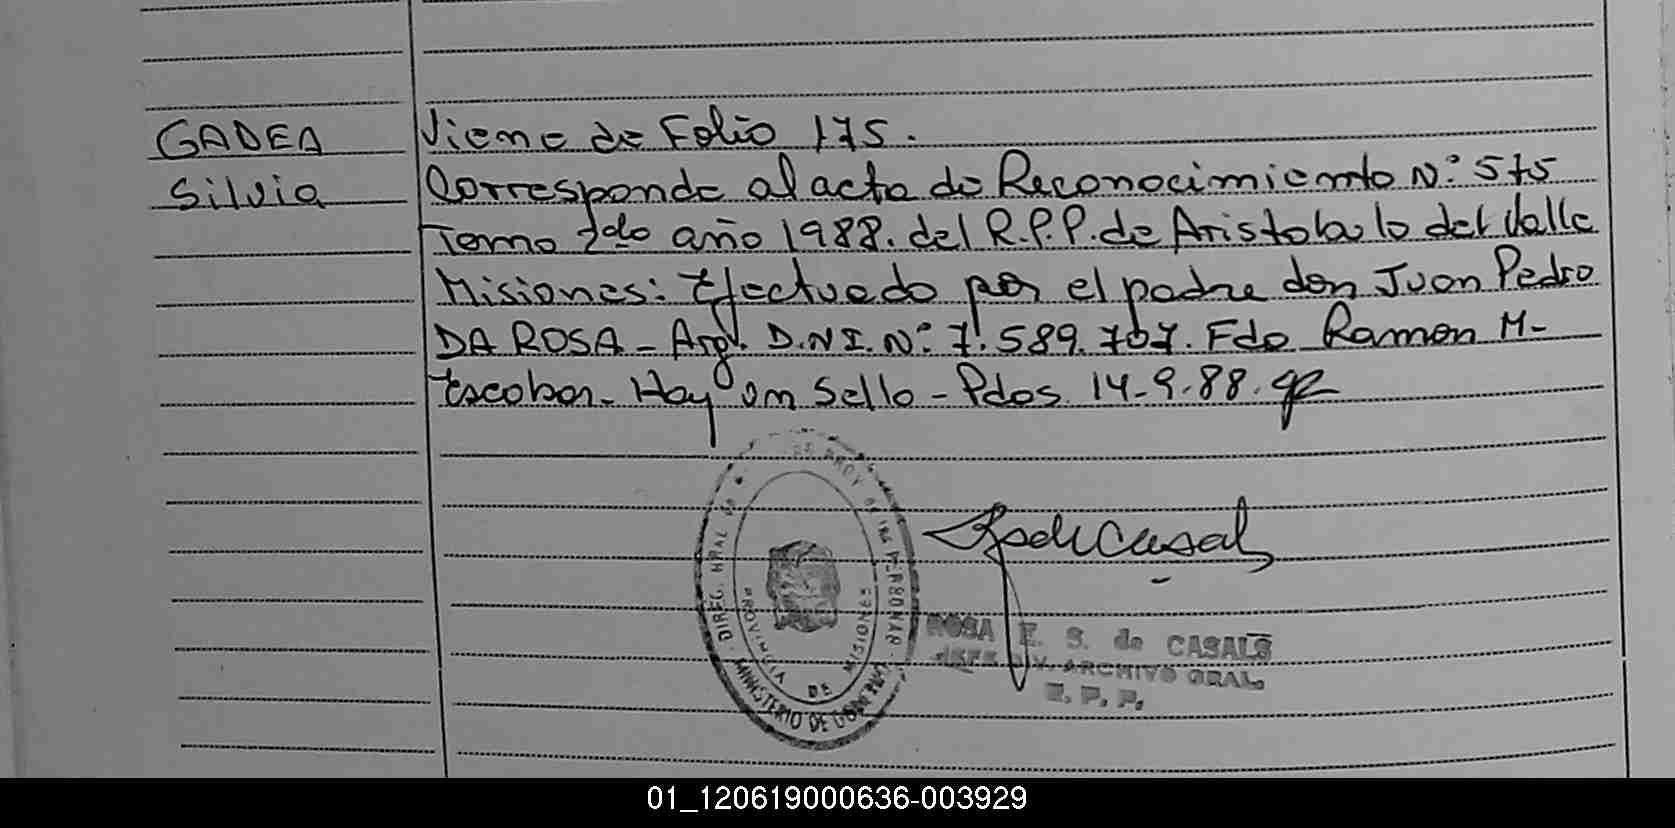 GADEA
Silvia
Viene de Folio 175.
Corresponde al acta de Reconocimiento N° 575
Tomo 2do año 1988. del R.P.P. de Aristobulo del Valle
Misiones: Efectuado por el padre don Juan Pedro
DA ROSA - Arg. D.N.I. N° 7.589.707. Fdo Ramon M.
Escobar - Hay un Sello - Pdas. 14-9-88.
DIREC. GRAL DE
PROV DE LAS PERSONAS
PROVINCIA DE MISIONES
MINISTERIO DE GOBIERNO
ROSA E. S. de CASALS
JEFE DIV. ARCHIVO GRAL.
R. P. P.
01_120619000636-003929